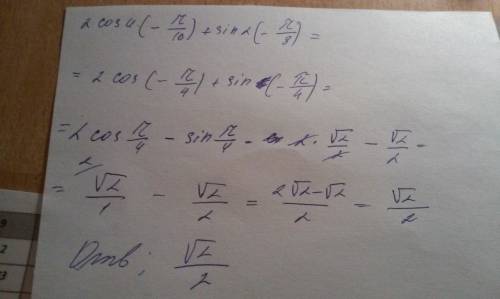 2 cos 4 (- π/16) + sin 2 (- π/8) =
= 2 cos (- π/4) + sin (- π/4) =
= 2 cos π/4 - sin π/4 = 2 · √2/2 - √2/2 =
= √2/1 - √2/2 = (2√2 - √2)/2 = √2/2
Отв; √2/2
9
2
3